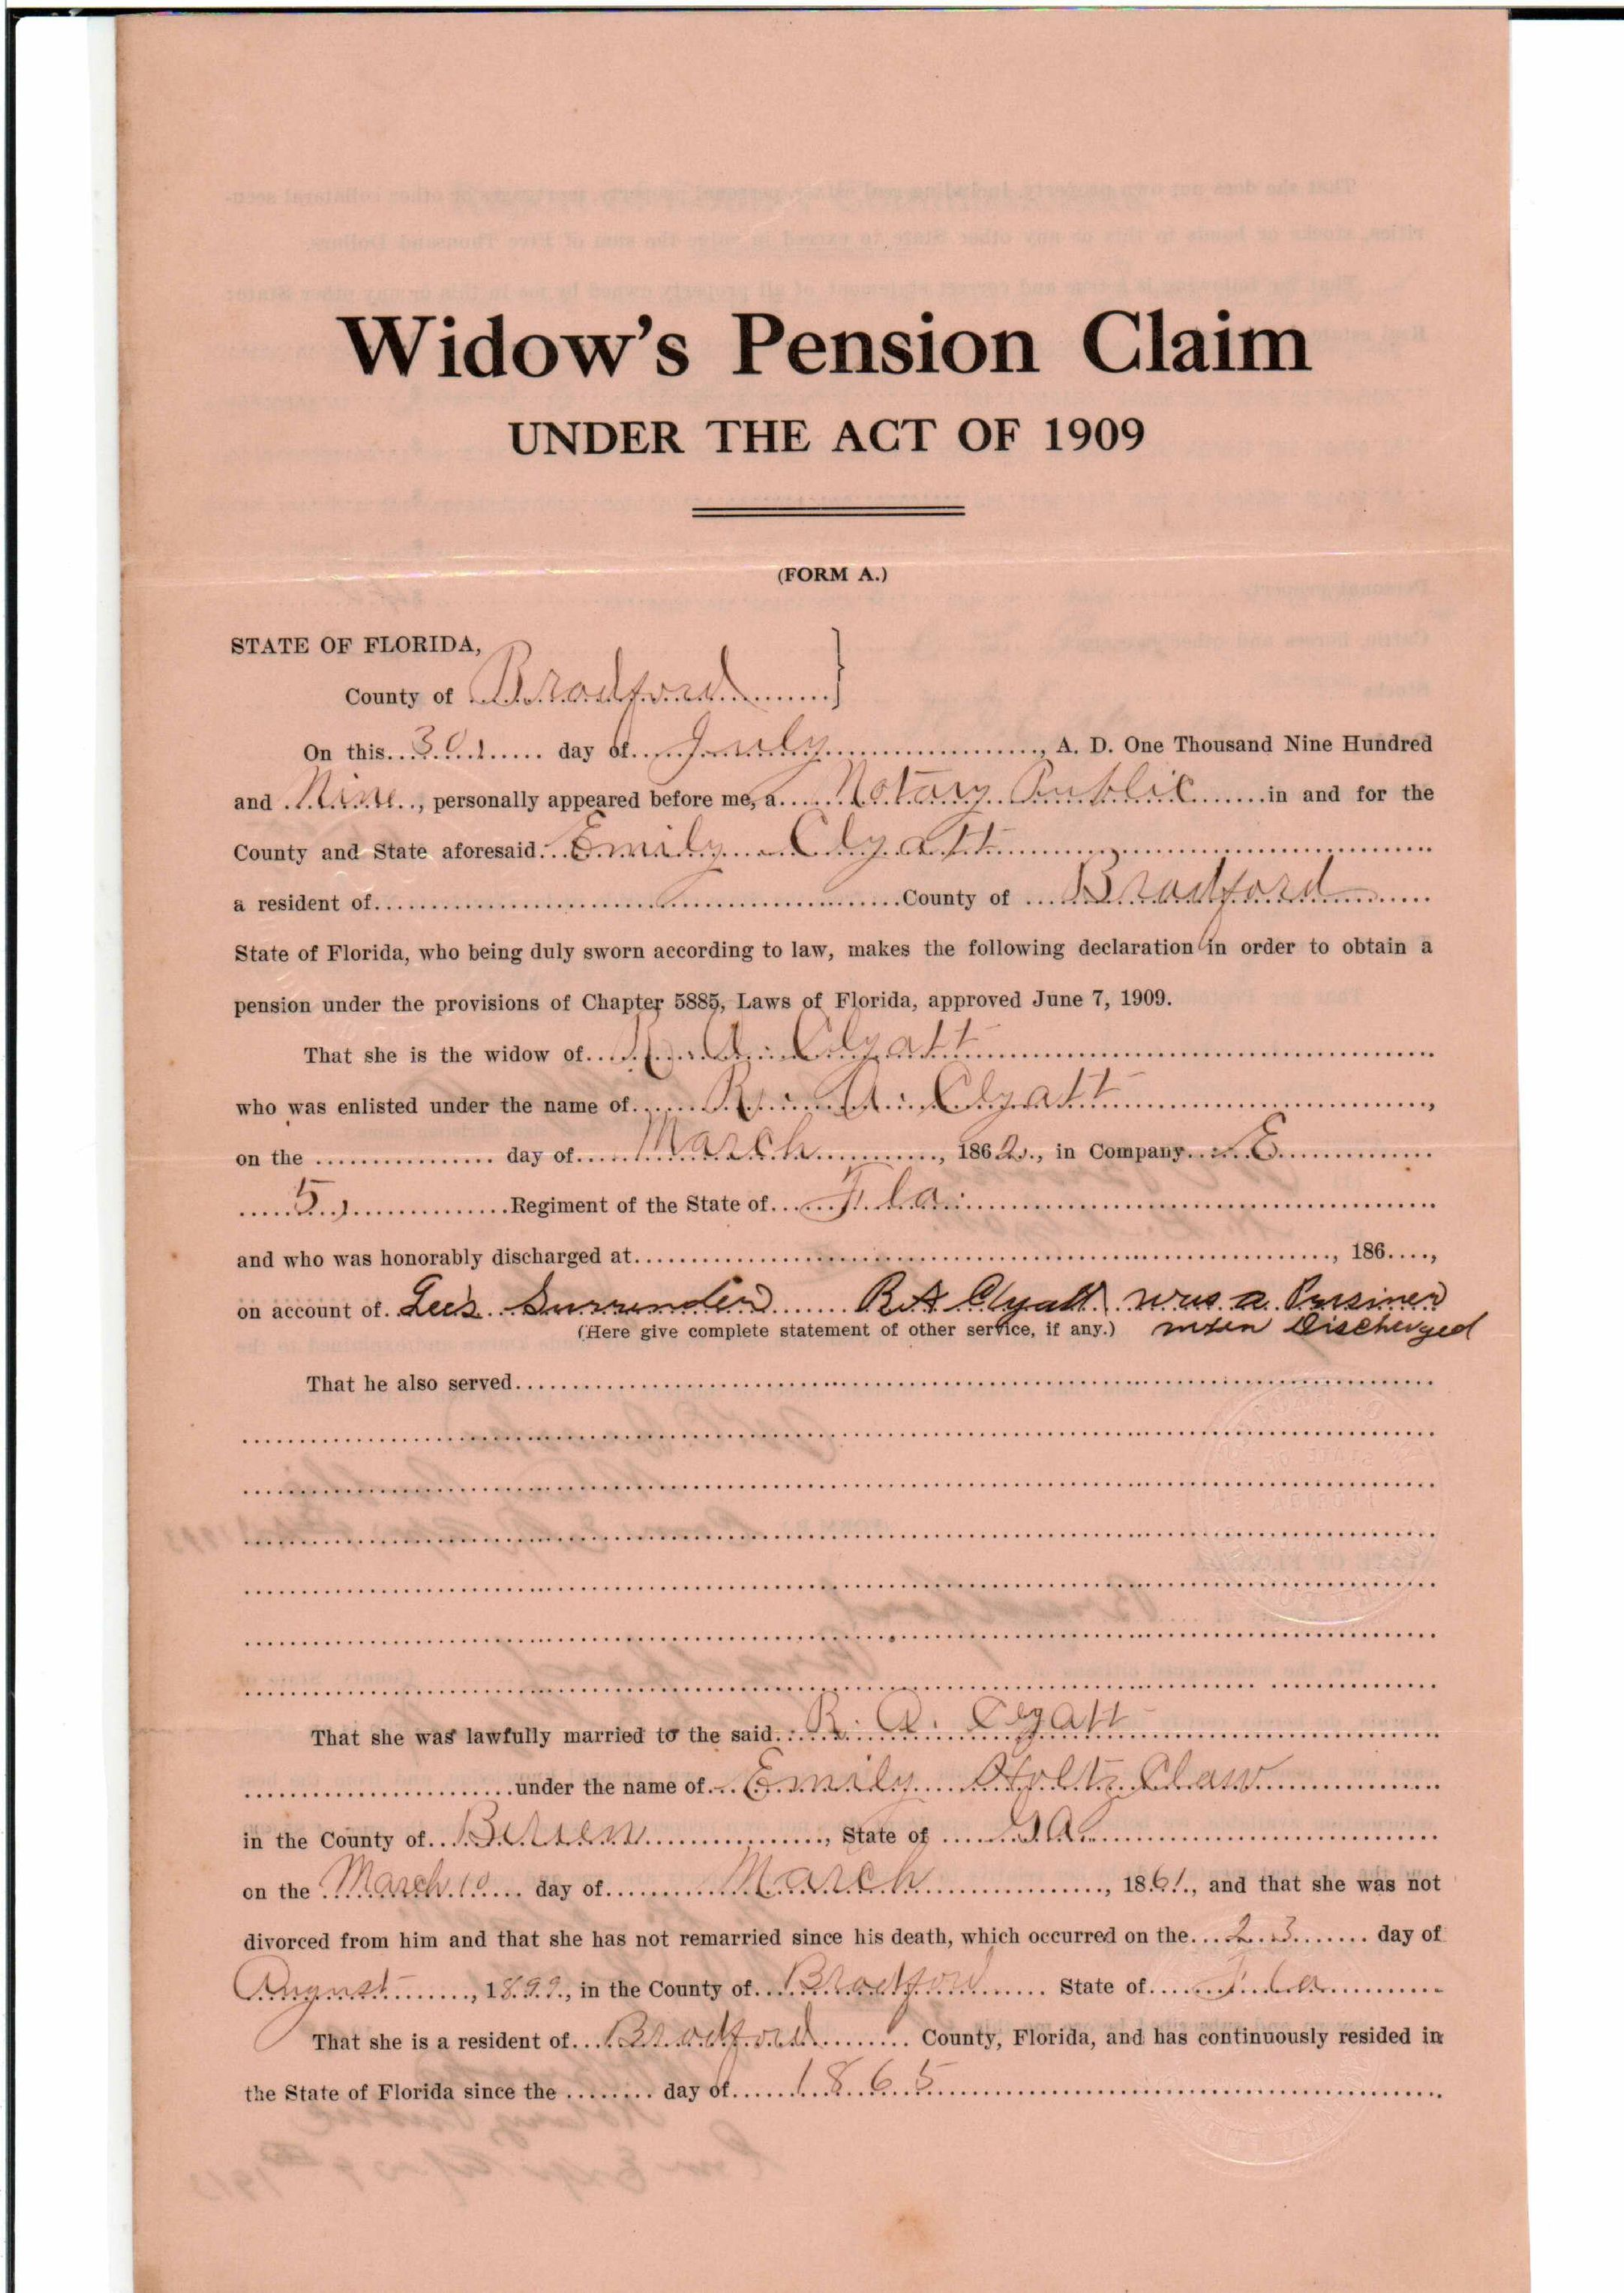 Widow's Pension Claim
UNDER THE ACT OF 1909
(FORM A.)
STATE OF FLORIDA,
County of Bradford
On this 30 day of July, A. D. One Thousand Nine Hundred
and Nine, personally appeared before me, a Notary Public in and for the
County and State aforesaid Emily Clyatt
a resident of County of Bradford
State of Florida, who being duly sworn according to law, makes the following declaration in order to obtain a
pension under the provisions of Chapter 5885, Laws of Florida, approved June 7, 1909.
That she is the widow of R. A. Clyatt
who was enlisted under the name of R. A. Clyatt,
on the day of March, 1862, in Company E
5 Regiment of the State of Fla.
and who was honorably discharged at, 186,
on account of Lee's Surrender R A Clyatt was a Prisiner
(Here give complete statement of other service, if any.) when Discharged
That he also served
That she was lawfully married to the said R. A. Clyatt
under the name of Emily Holtz Claw
in the County of Berien, State of Ga.
on the March 10 day of March, 1861, and that she was not
divorced from him and that she has not remarried since his death, which occurred on the 23 day of
August, 1899, in the County of Bradford State of Fla
That she is a resident of Bradford County, Florida, and has continuously resided in
the State of Florida since the day of 1865